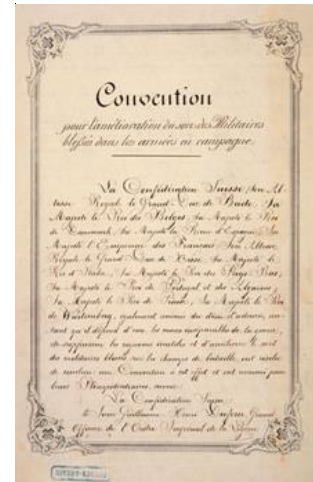 Convention
pour l'amélioration du sort des Militaires
blessés dans les armées en campagne.
La Confédération Suisse, Son Al-
tesse Royale le Grand Duc de Bade, Sa
Majesté le Roi des Belges, Sa Majesté le Roi
de Danemark, Sa Majesté la Reine d'Espagne, Sa
Majesté l'Empereur des Français, Son Altesse
Royale le Grand Duc de Hesse, Sa Majesté le
Roi d'Italie, Sa Majesté le Roi des Pays-Bas,
Sa Majesté le Roi de Portugal et des Algarves,
Sa Majesté le Roi de Prusse, Sa Majesté le Roi
de Wurtemberg, également animés du désir d'adoucir, au-
tant qu'il dépend d'eux, les maux inséparables de la guerre,
de supprimer les rigueurs inutiles et d'améliorer le sort
des militaires blessés sur les champs de bataille, ont résolu
de conclure une Convention à cet effet et ont nommé pour
leurs Plénipotentiaires, savoir:
La Confédération Suisse
le Sieur Guillaume Henri Dufour, Grand
Officier de l'Ordre Impérial de la Légion